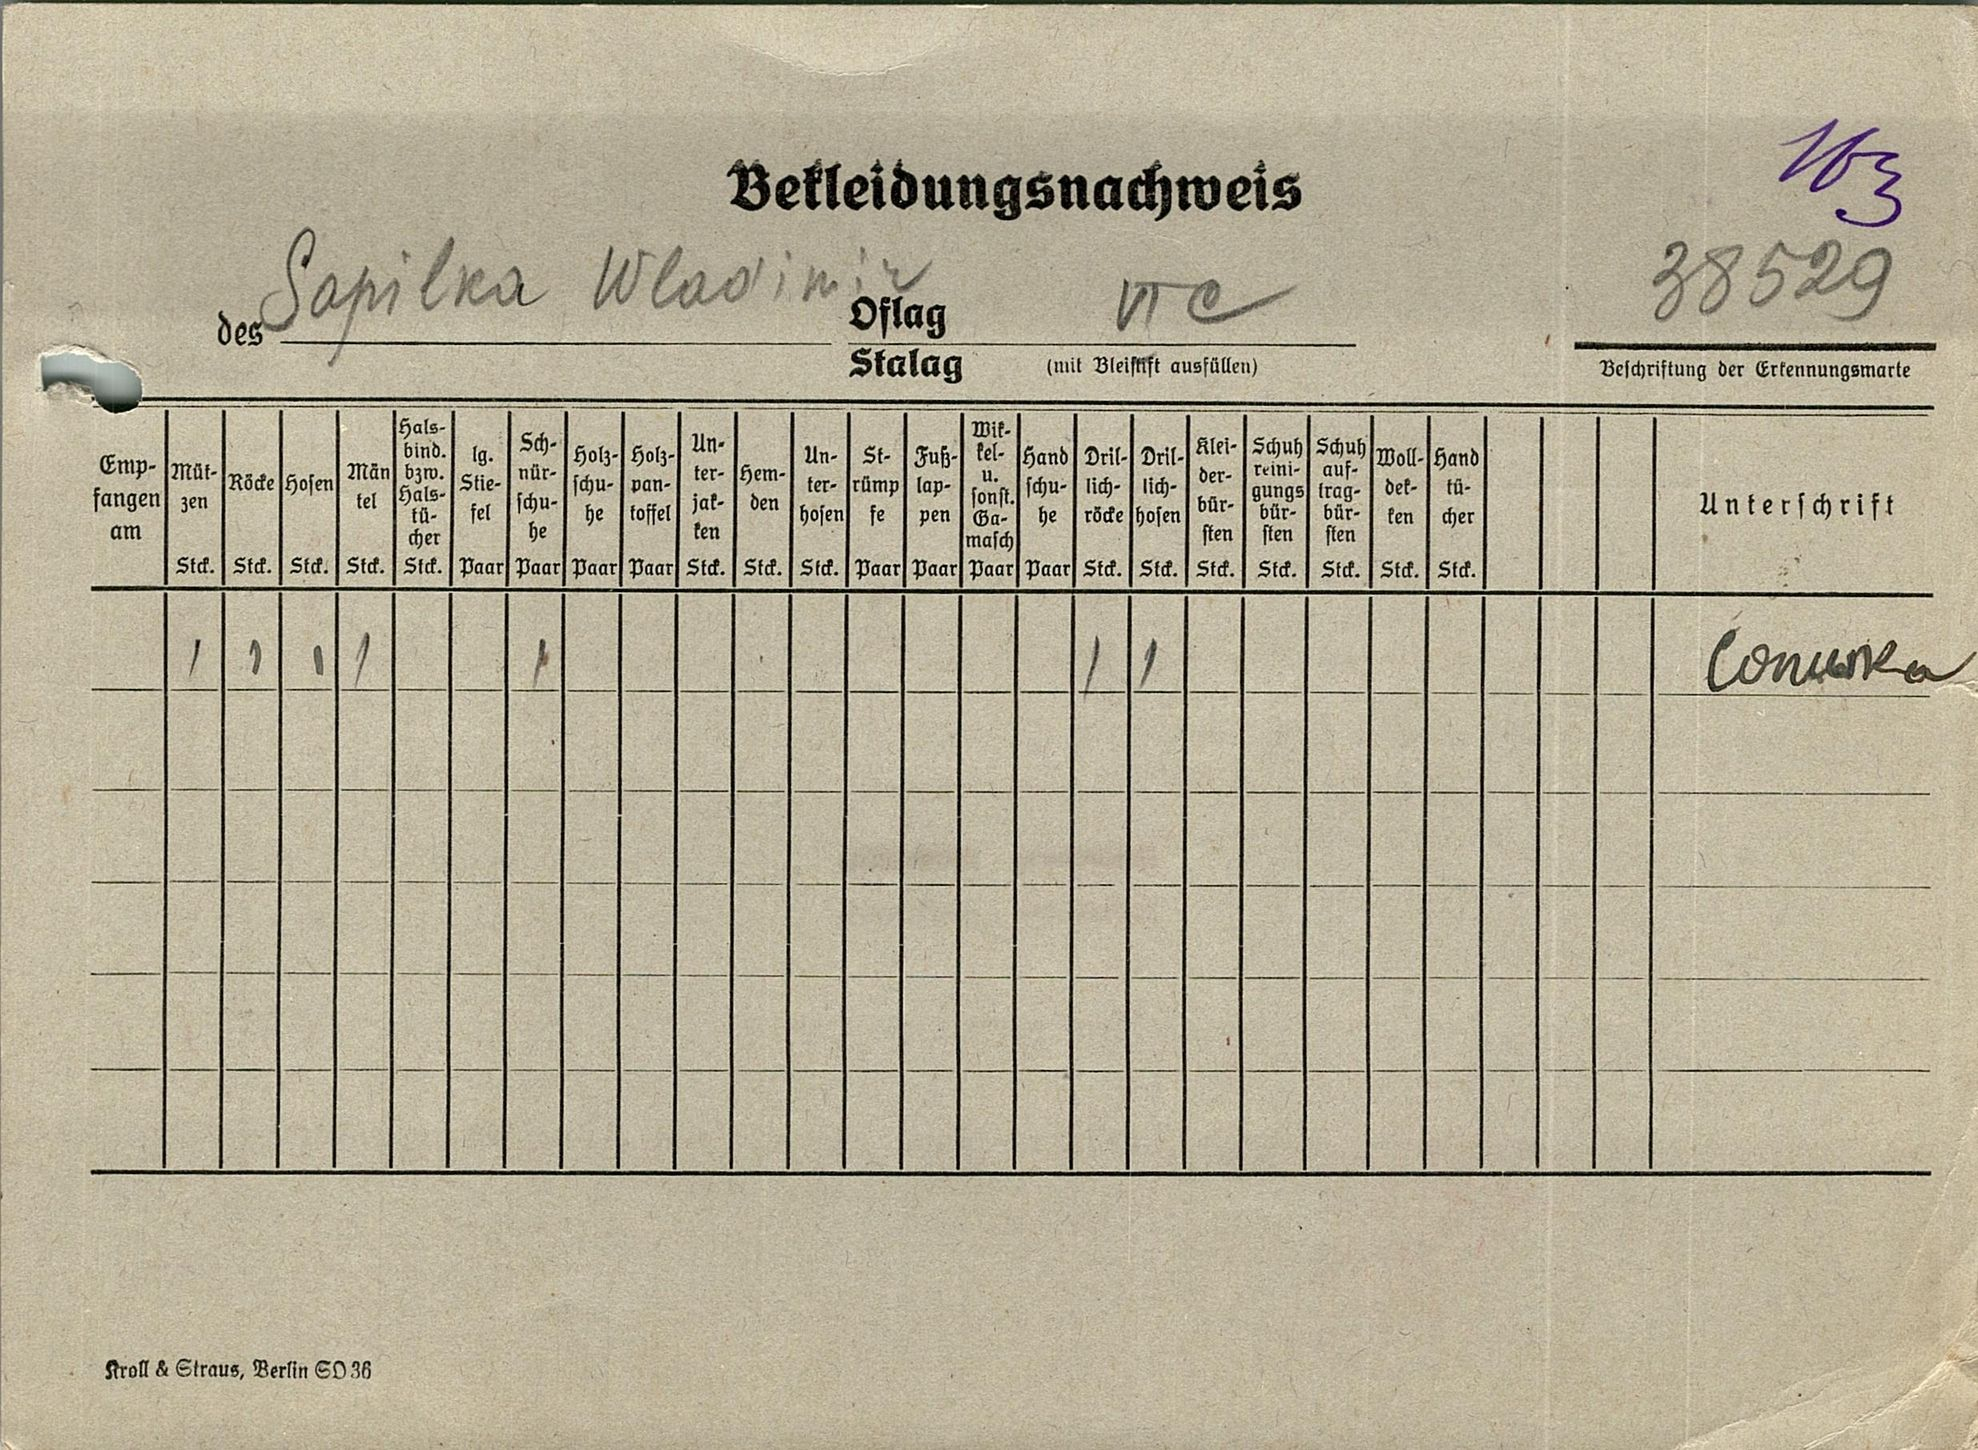 Bekleidungsnachweis
des Sapilka Wladimir Oflag Stalag VI C 38529
(mit Bleistift ausfüllen) Beschriftung der Erkennungsmarte
Emp-fangen am
Müt-zen Stck.
Röcke Stck.
Hosen Stck.
Män tel Stck.
Hals-bind. bzw. Hals-tü-cher Stck.
lg. Stie-fel Paar
Sch-nür-schu-he Paar
Holz-schu-he Paar
Holz-pan-toffel Paar
Un-ter-jak-ken Stck.
Hem-den Stck.
Un-ter-hosen Stck.
St-rümp fe Paar
Fuß-lap-pen Paar
Wik-kel- u. sonst. Ga-masch Paar
Hand schu-he Paar
Dril-lich-röcke Stck.
Dril-lich-hosen Stck.
Klei-der-bür-sten Stck.
Schuh reini-gungs bür-sten Stck.
Schuh auf-trag-bür-sten Stck.
Woll-dek-ken Stck.
Hand tü-cher Stck.
Unterschrift
1 1 1 1 1 1 1 Сопилка
Kroll & Straus, Berlin SO 36